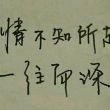 情不知所
一往而深